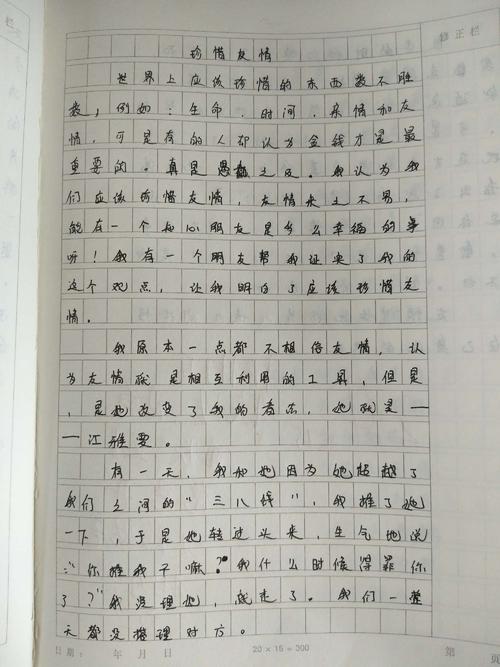 修正栏
珍惜友情
世界上应该珍惜的东西数不胜
数，例如：生命、时间、亲情和友
情，可是有的人却认为金钱才是最
重要的。真是愚蠢之及。我认为我
们应该珍惜友情，友情来之不易，
能在一个知心朋友是多么幸福的事
呀！我有一个朋友帮我证实了我的
这个观点，让我明白了应该珍惜友
情。
我原本一点都不相信友情，认
为友情就是相互利用的工具，但是
，是她改变了我的看法，她就是—
—江雅雯。
有一天，我和她因为她超越了
我们之间的“三八线”，我推了她
一下，于是她转过头来，生气地说
：“你推我干嘛？我什么时候得罪你
了？”我没理她，就走了。我们一整
天都没搭理对方。
日期： 年 月 日 20×15=300 第 页